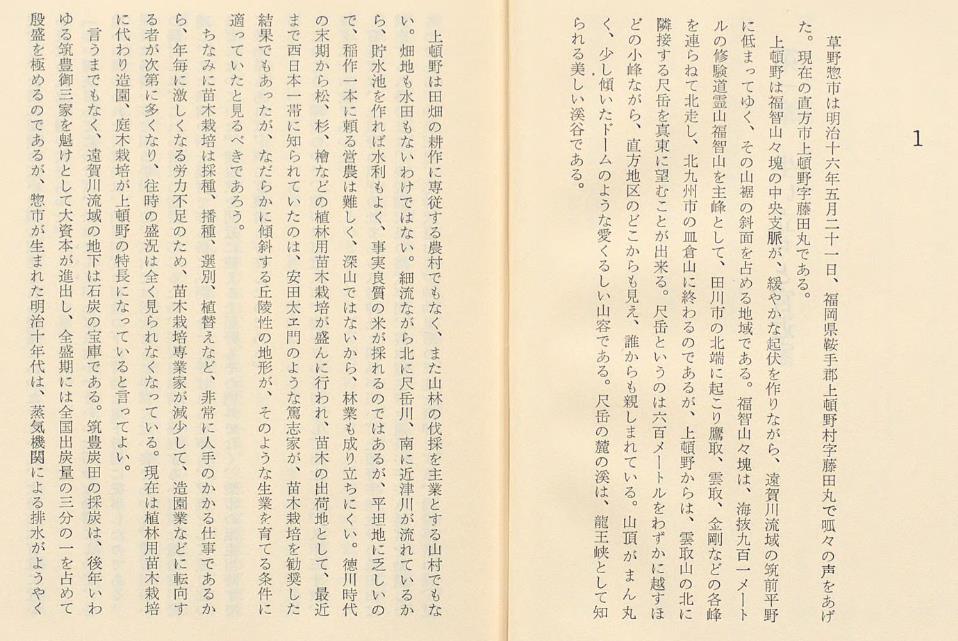 1
草野惣市は明治十六年五月二十一日、福岡県鞍手郡上頓野村字藤田丸で呱々の声をあげ
た。現在の直方市上頓野字藤田丸である。
上頓野は福智山々塊の中央支脈が、緩やかな起伏を作りながら、遠賀川流域の筑前平野
に低まってゆく、その山裾の斜面を占める地域である。福智山々塊は、海抜九百一メート
ルの修験道霊山福智山を主峰として、田川市の北端に起こり鷹取、雲取、金剛などの各峰
を連らねて北走し、北九州市の皿倉山に終わるのであるが、上頓野からは、雲取山の北に
隣接する尺岳を真東に望むことが出来る。尺岳というのは六百メートルをわずかに越すほ
どの小峰ながら、直方地区のどこからも見え、誰からも親しまれている。山頂がまん丸
く、少し傾いたドームのような愛くるしい山容である。尺岳の麓の渓は、龍王峡として知
られる美しい渓谷である。
上頓野は田畑の耕作に専従する農村でもなく、また山林の伐採を主業とする山村でもな
い。畑地も水田もないわけではない。細流ながら北に尺岳川、南に近津川が流れているか
ら、貯水池を作れば水利もよく、事実良質の米が採れるのではあるが、平坦地に乏しいの
で、稲作一本に頼る営農は難しく、深山ではないから、林業も成り立ちにくい。徳川時代
の末期から松、杉、檜などの植林用苗木栽培が盛んに行われ、苗木の出荷地として、最近
まで西日本一帯に知られていたのは、安田太ヱ門のような篤志家が、苗木栽培を勧奨した
結果でもあったが、なだらかに傾斜する丘陵性の地形が、そのような生業を育てる条件に
適っていたと見るべきであろう。
ちなみに苗木栽培は採種、播種、選別、植替えなど、非常に人手のかかる仕事であるか
ら、年毎に激しくなる労力不足のため、苗木栽培専業家が減少して、造園業などに転向す
る者が次第に多くなり、往時の盛況は全く見られなくなっている。現在は植林用苗木栽培
に代わり造園、庭木栽培が上頓野の特長になっていると言ってよい。
言うまでもなく、遠賀川流域の地下は石炭の宝庫である。筑豊炭田の採炭は、後年いわ
ゆる筑豊御三家を魁けとして大資本が進出し、全盛期には全国出炭量の三分の一を占めて
殷盛を極めるのであるが、惣市が生まれた明治十年代は、蒸気機関による排水がようやく